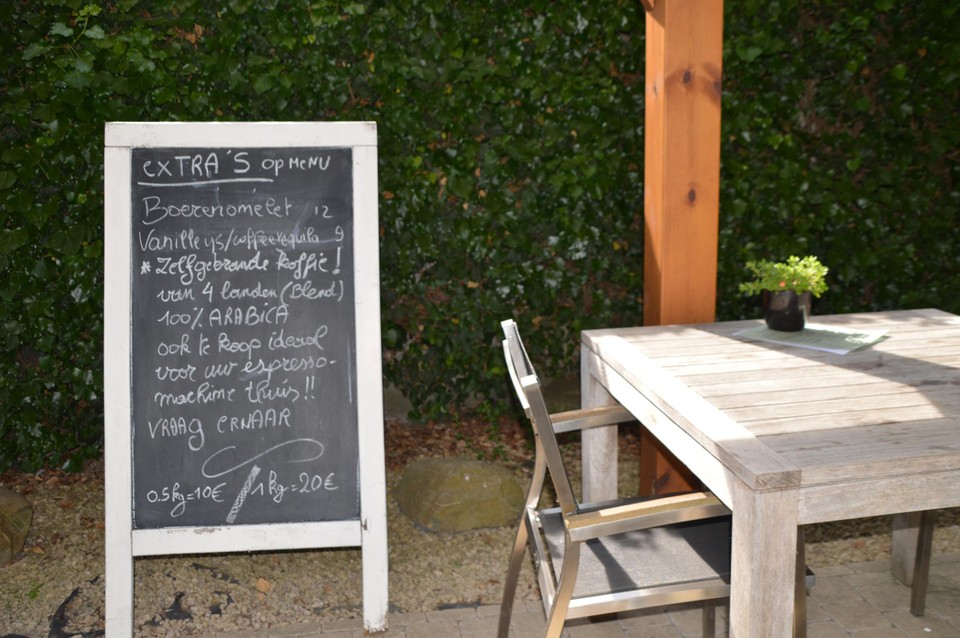 eXTRA'S op MeNU
Boerenomelet 12
Vanilleys/coffeetequila 9
* Zelfgebrande koffie!
van 4 landen (Blend)
100% ARABICA
ook te koop ideaal
voor uw espresso-
machine thuis!!
VRAAg ERNAAR
0.5kg=10€ 1kg=20€